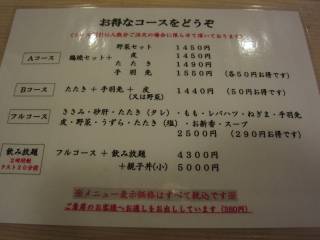 お得なコースをどうぞ
Aコース
野菜セット 1450円
鶏焼セット+ 皮 1450円
たたき 1490円
手羽先 1550円 (各50円お得です)
Bコース
たたき+手羽先+皮 1440円 (50円お得です)
(又は野菜)
フルコース
ささみ・砂肝・たたき(タレ)・もも・レバハツ・ねぎま・手羽先
皮・野菜・うずら・たたき(塩)・お新香・スープ
2500円 (290円お得です)
飲み放題
2時間制
ラスト20分前
フルコース + 飲み放題 4300円
+親子丼(小) 5000円
※メニュー表示価格はすべて税込です※
ご来店のお客様へお通しをお出ししています(380円)